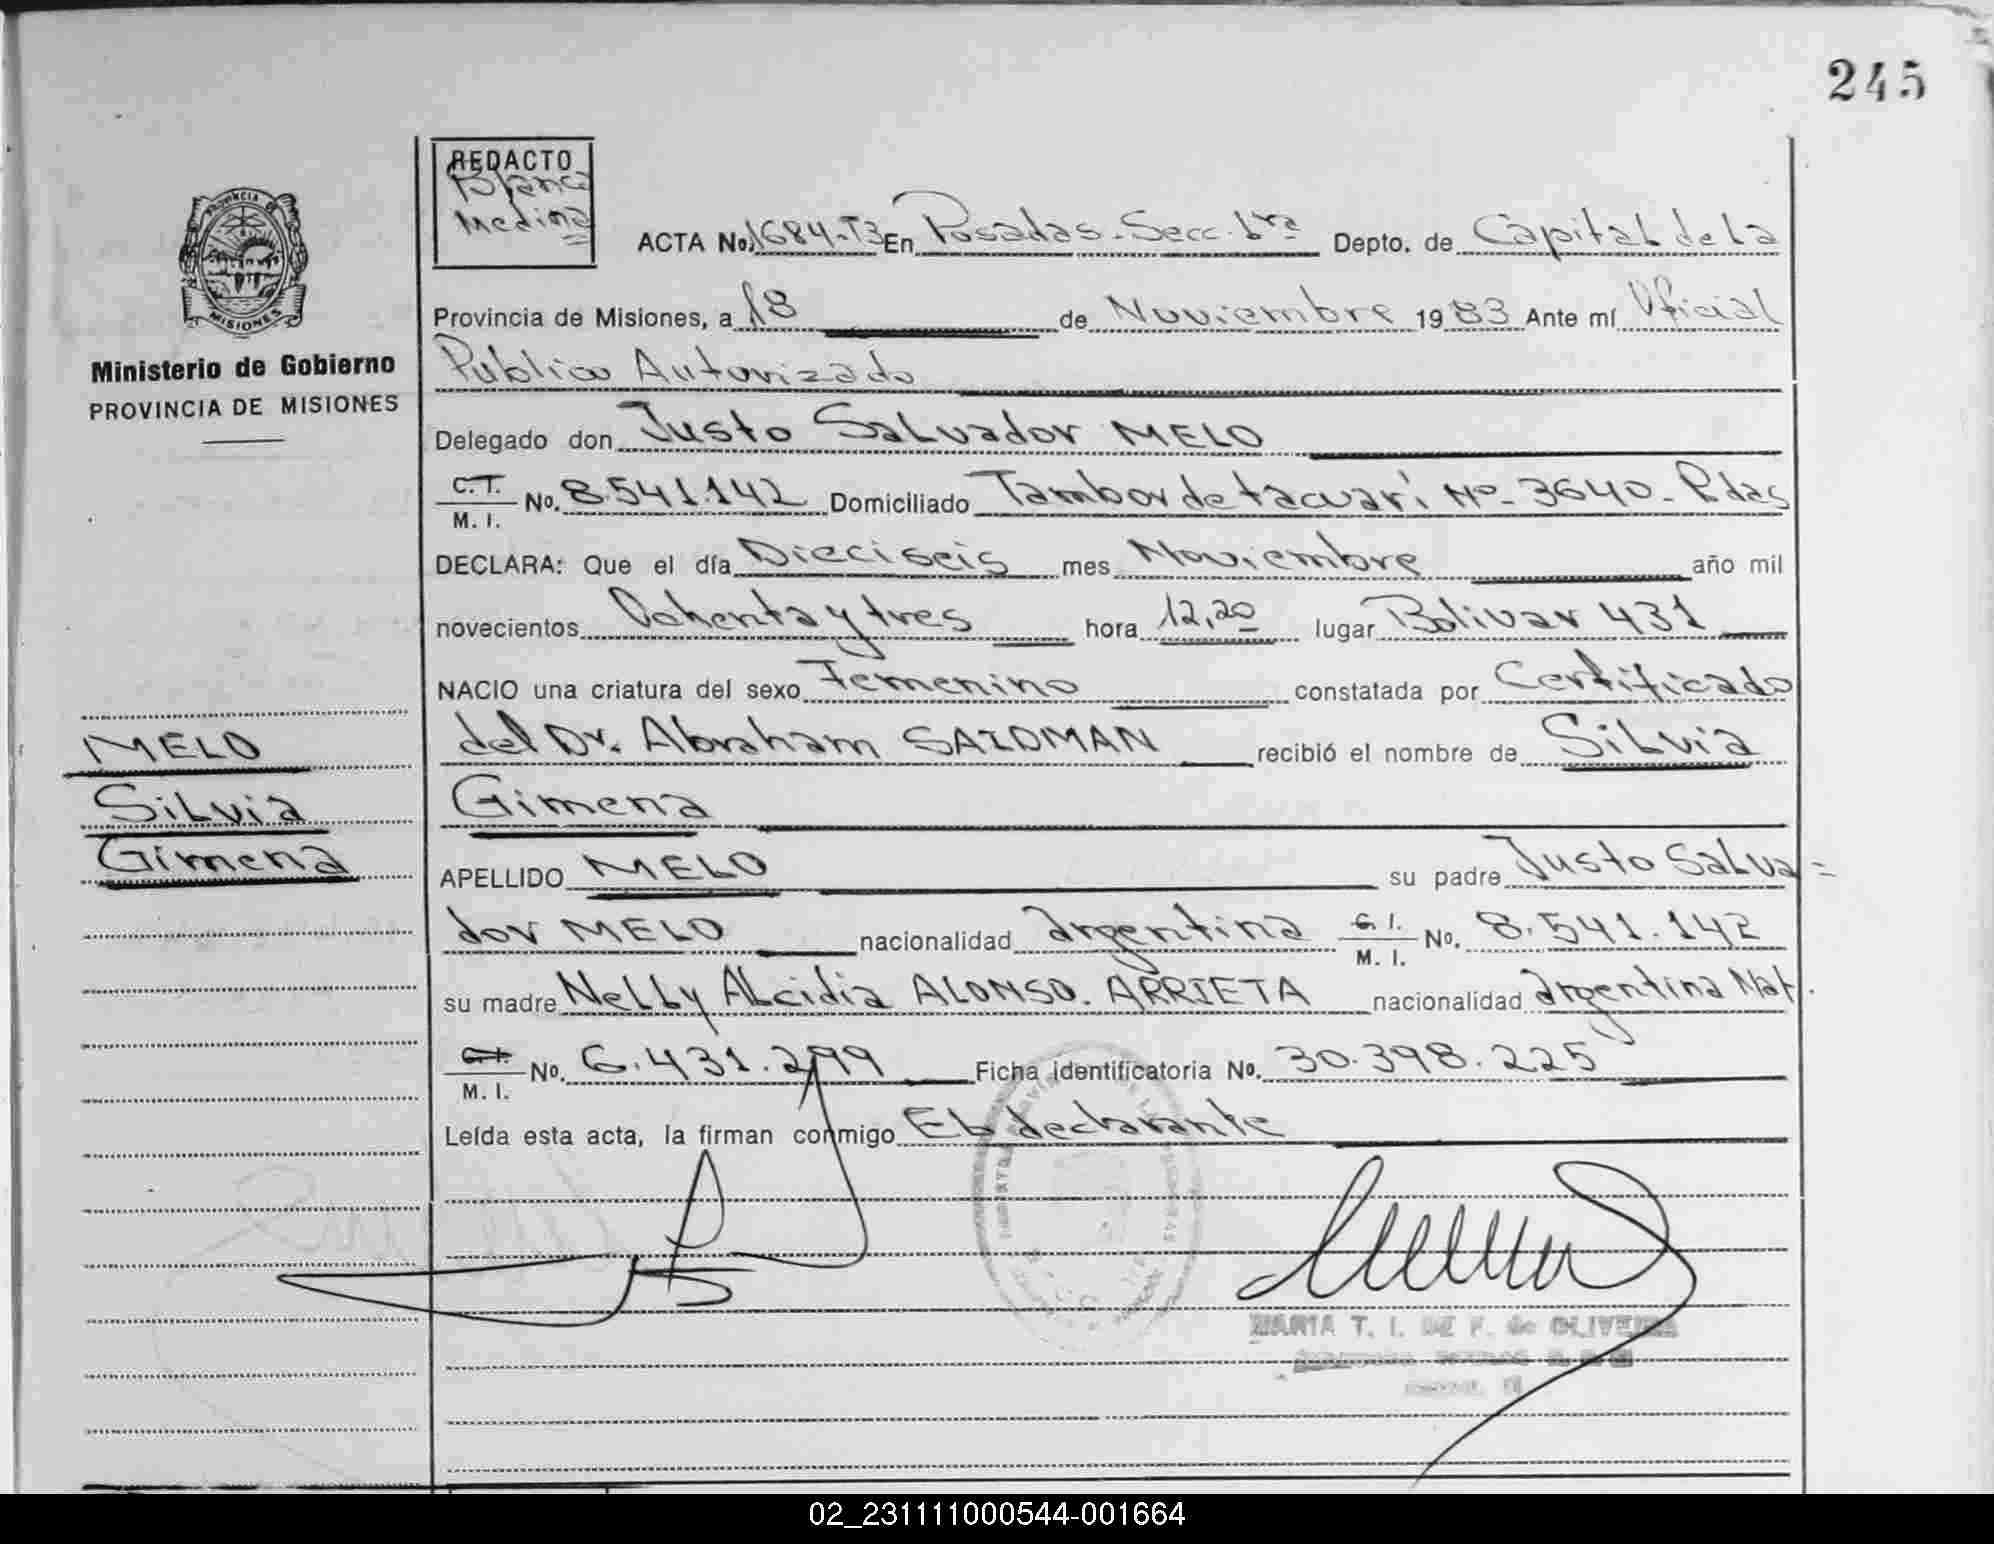 245
REDACTO
Blanca
Medina
ACTA No. 1684-T3 En Posadas - Secc. 1ra Depto. de Capital de La
Provincia de Misiones, a 18 de Noviembre 1983 Ante mí Oficial
Publico Autorizado
PROVINCIA DE
MISIONES
Ministerio de Gobierno
PROVINCIA DE MISIONES
Delegado don Justo Salvador MELO
C.T. M. I. No. 8.541.142 Domiciliado Tambor de tacuari Nº- 3640 - Pdas
DECLARA: Que el día Dieciseis mes Noviembre año mil
novecientos Ochenta y tres hora 12,20 lugar Bolivar 431
NACIO una criatura del sexo Femenino constatada por Certificado
del Dr. Abraham SAIDMAN recibió el nombre de Silvia
Gimena
MELO
Silvia
Gimena
APELLIDO MELO su padre Justo Salva=
dor MELO nacionalidad argentina C. I. M. I. No. 8.541.142
su madre Nelly Alcidia ALONSO. ARRIETA nacionalidad argentina Nat.
C. I. M. I. No. 6.431.299 Ficha identificatoria No. 30.398.225
Leída esta acta, la firman conmigo El declarante
MARIA T. I. DE F. de OLIVEIRA
02_231111000544-001664